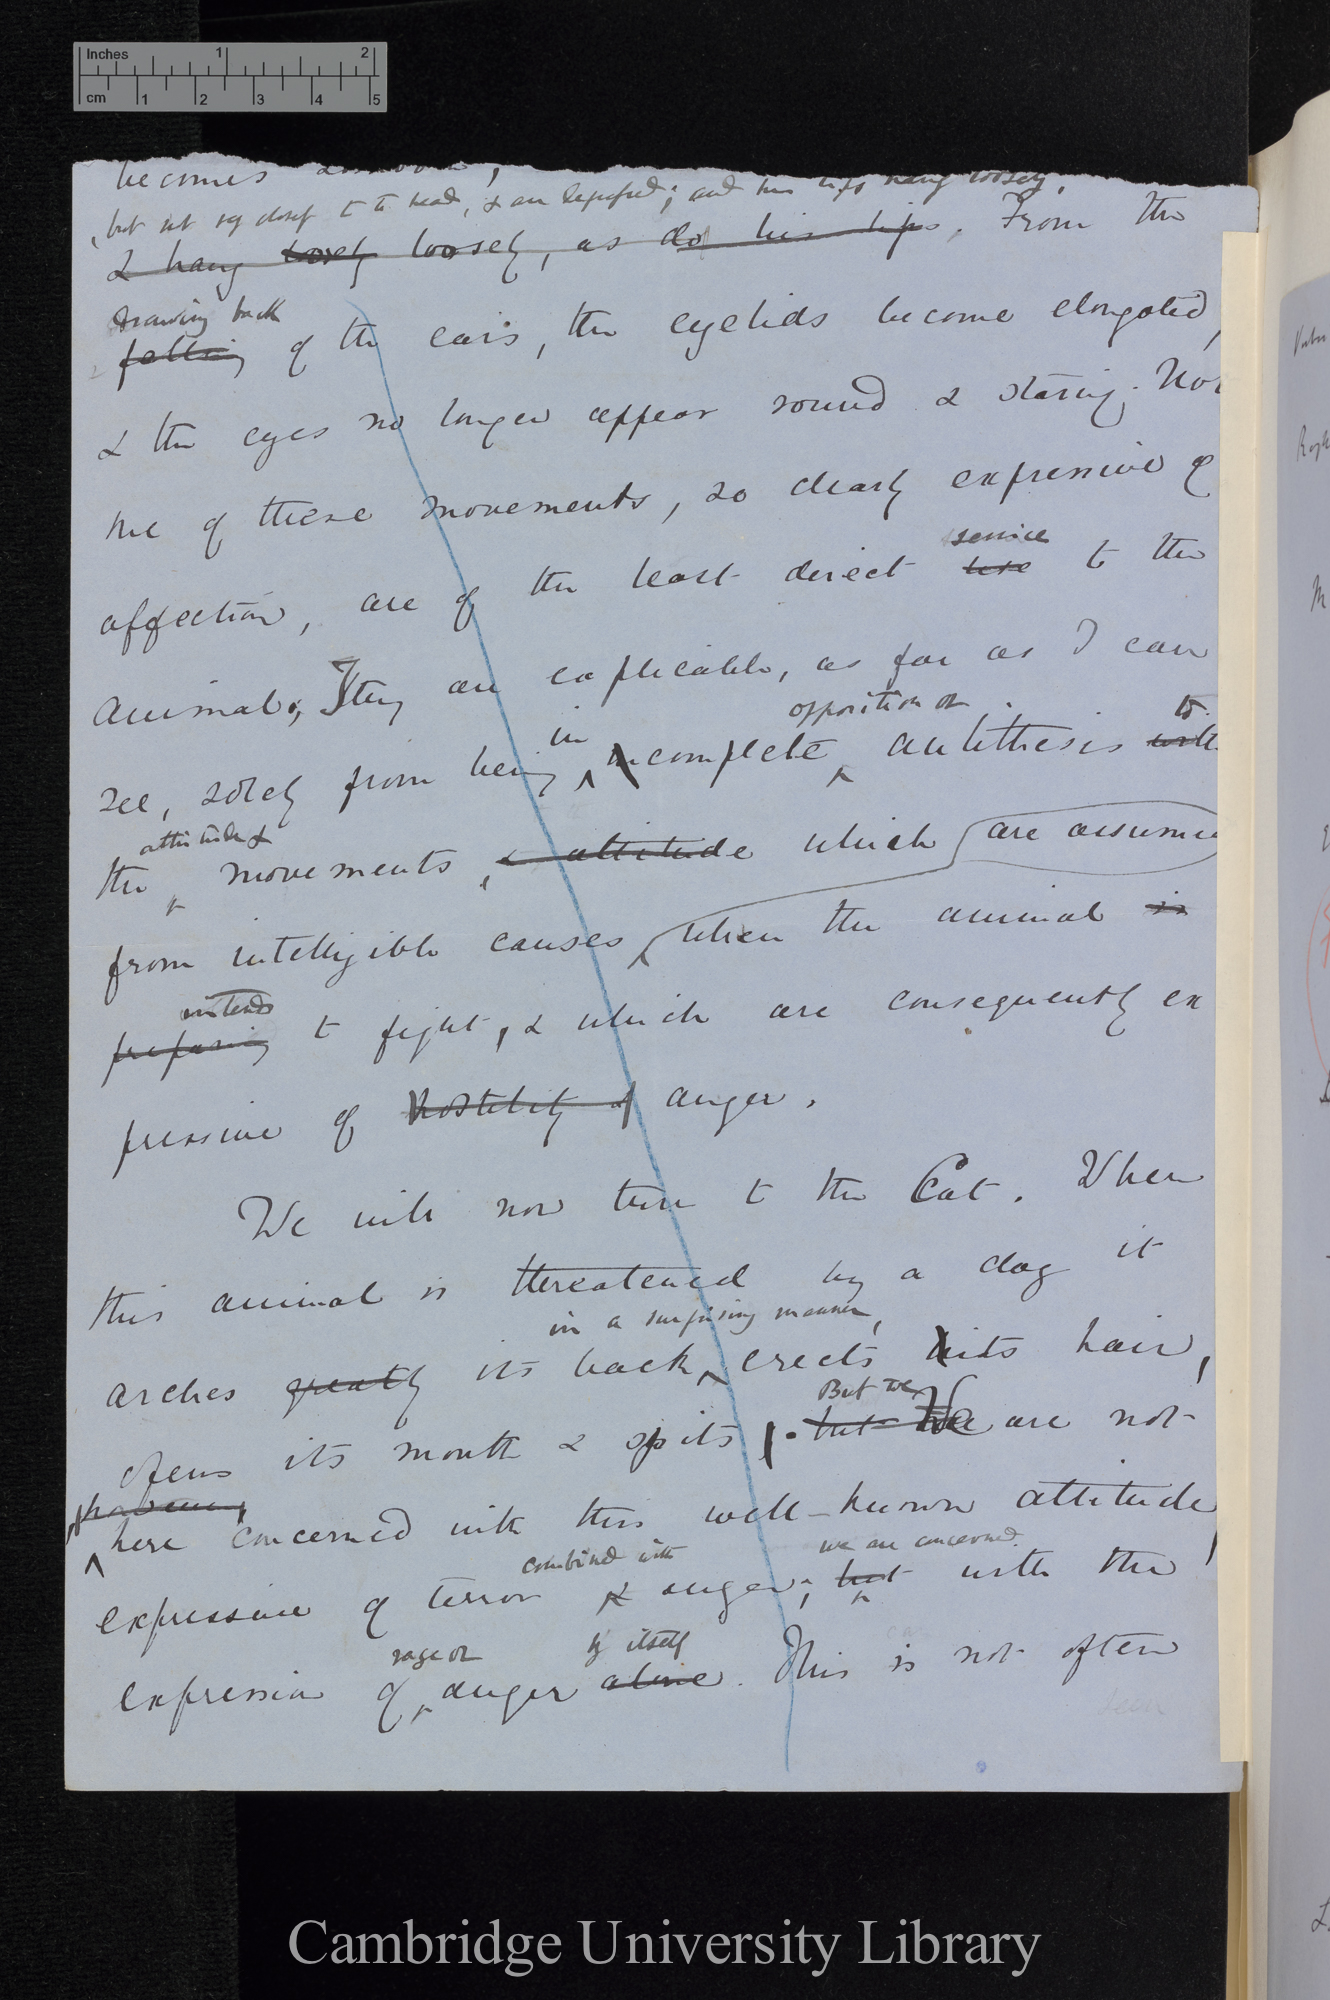 Inches 1 2
cm 1 2 3 4 5
becomes
but not very close to the head, & are depressed; and his lips hang loosely.
& hang loosely loosely, as do his lips. From the
drawing back
falling of the ears, the eyelids become elongated,
& the eyes no longer appear round & staring. Not
one of these movements, so clearly expressive of
service
affection, are of the least direct use to the
animal; They are explicable, as far as I can
in opposition or to
see, solely from being complete antithesis with
attitude &
the movements & attitude which are assumed
from intelligible causes when the animal is
intends
preparing to fight, & which are consequently ex
pressive of hostility of anger.
We will now turn to the Cat. When
this animal is threatened by a dog it
in a surprising manner,
arches greatly its back, erects its hair,
But we
opens its mouth & spits. but We are not
here concerned with this well-known attitude,
combined with we are concerned
expressive of terror & anger; but with the
rage or by itself
expression of anger alone. This is not often
seen
Cambridge University Library